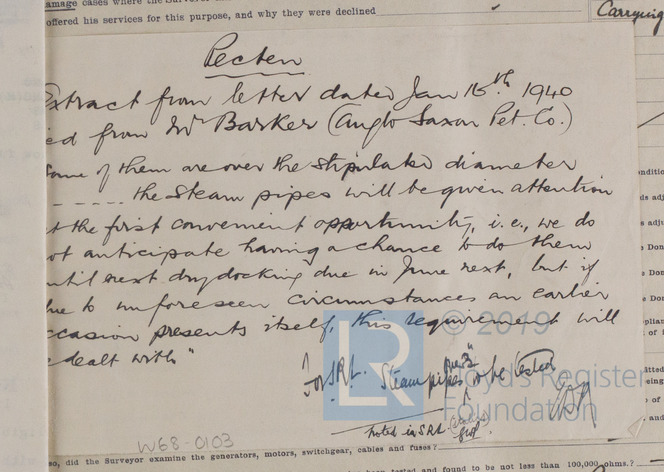 amage cases where the Surve
offered his services for this purpose, and why they were declined
Carrying
Pecten
Extract from letter dated Jan 15th 1940
ed from Mr Barker (Anglo Saxon Pet. Co.)
ome of them are over the stipulated diameter
----- the steam pipes will be given attention
t the first convenient opportunity, i.e., we do
ot anticipate having a chance to do them
until next drydocking due in June next, but if
ue to unforeseen circumstances an earlier
ccasion presents itself, this requirement will
dealt with"
© 2019
LR
Lloyd's Register
Foundation
For S.R.L. Steam pipes over 3" to be tested
noted in SRL
W68-0103
so, did the Surveyor examine the generators, motors, switchgear, cables and fuses?
been tested and found to be not less than 100,000 ohms?